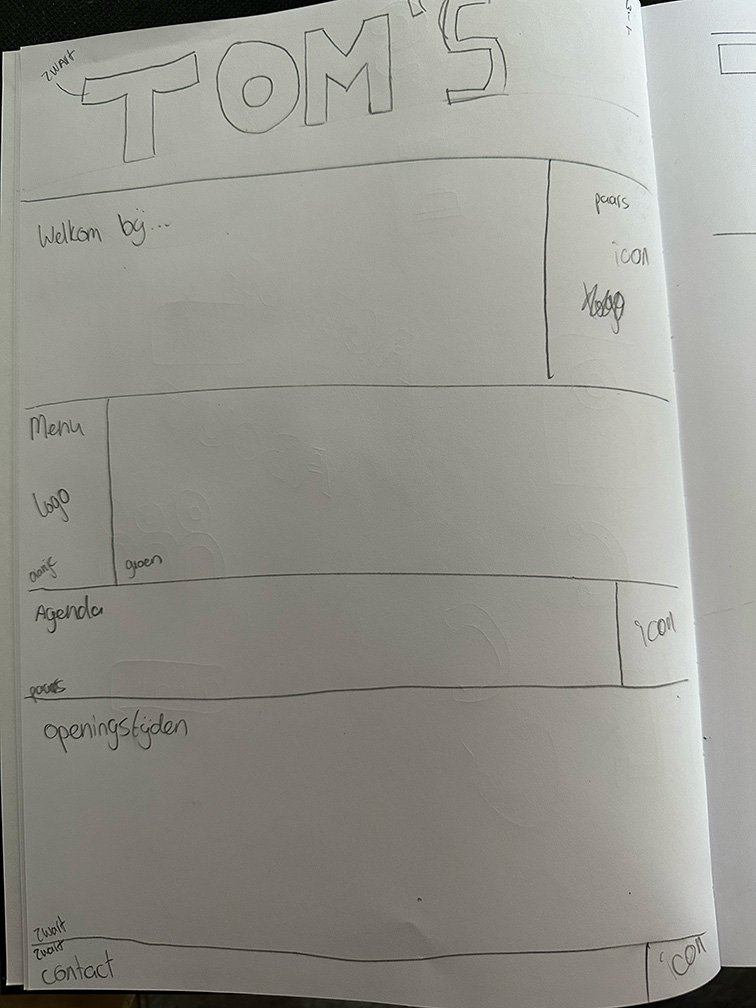 zwart
TOM'S
Welkom bij...
paars
icon
Menu
logo
oranje
groen
Agenda
icon
paars
openingstijden
zwart
zwart
contact
icon